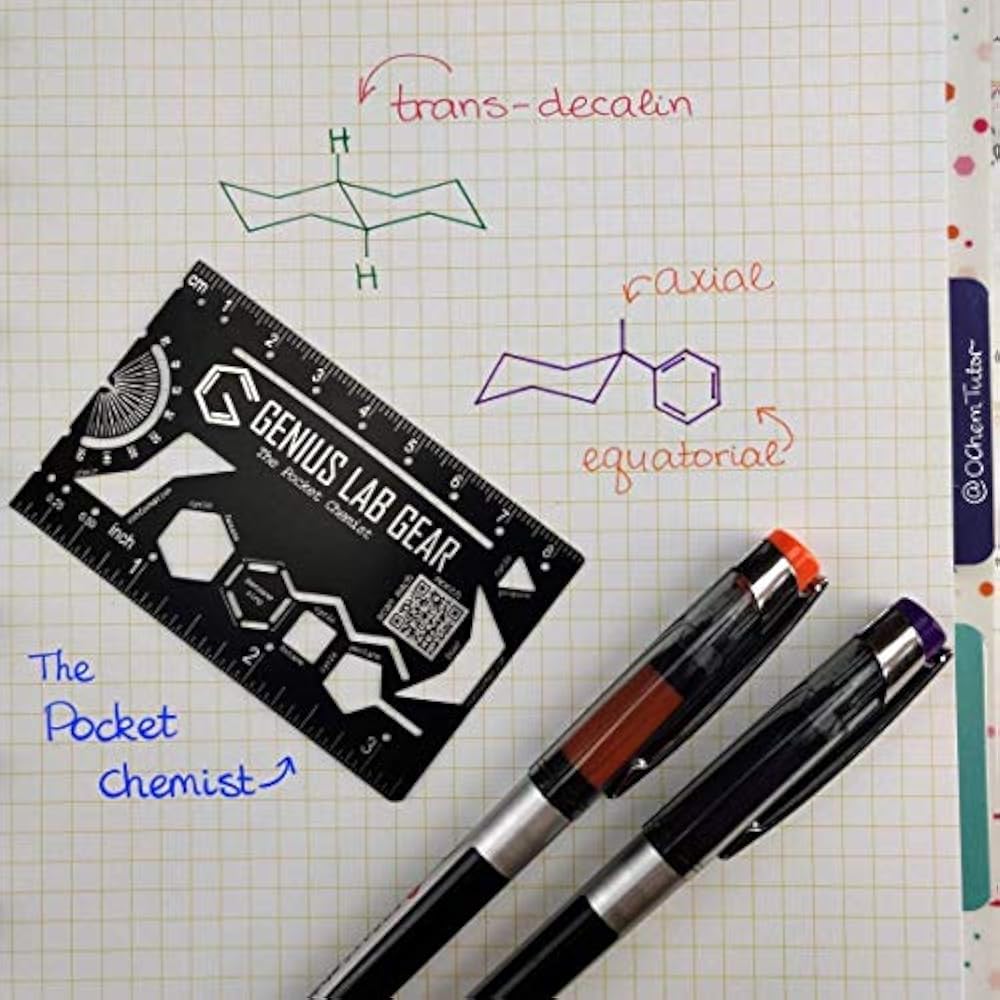 trans-decalin
H
H
axial
equatorial
@OChemTutor
cm 1 2 3 4 5 6 7 8
GENIUS LAB GEAR
The Pocket Chemist
0.25 0.50 inch 1 2 3
The
Pocket
Chemist